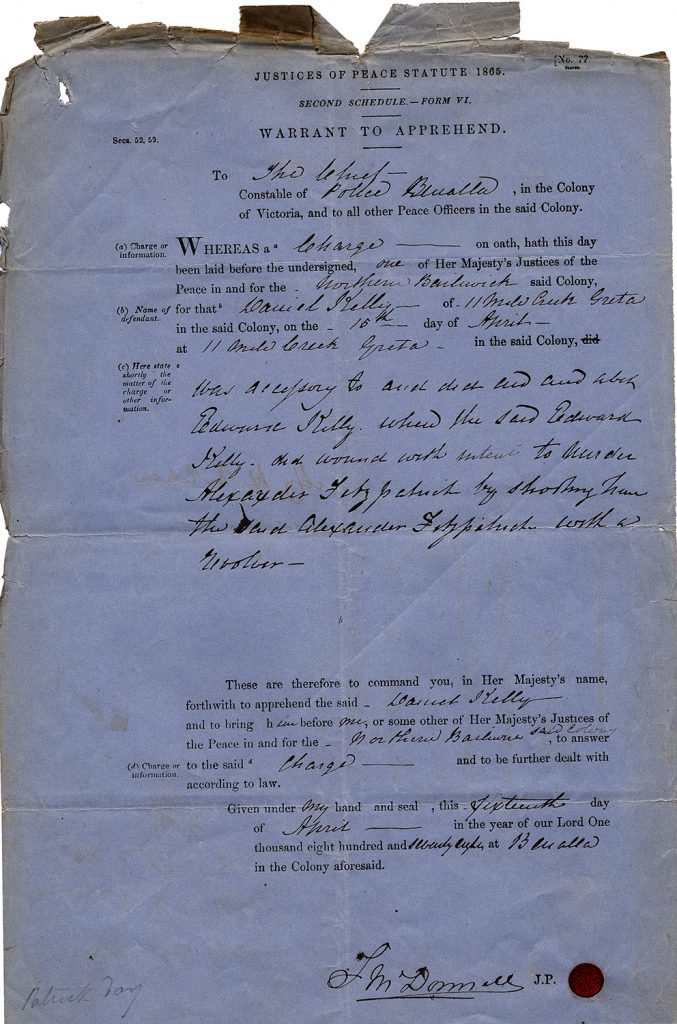 [No. 77
JUSTICES OF PEACE STATUTE 1865.
SECOND SCHEDULE.—FORM VI.
WARRANT TO APPREHEND.
Secs. 52, 59.
To The Chief
Constable of Police Benalla , in the Colony
of Victoria, and to all other Peace Officers in the said Colony.
(a) Charge or information.
WHEREAS a a Charge — on oath, hath this day
been laid before the undersigned, one of Her Majesty's Justices of the
Peace in and for the Northern Bailiwick said Colony,
(b) Name of defendant.
for that b Daniel Kelly of 11 Mile Creek Greta
in the said Colony, on the 15th day of April
at 11 Mile Creek Greta in the said Colony, did
(c) Here state shortly the matter of the charge or other information.
c
was accessory to and did aid and abet
Edward Kelly when the said Edward
Kelly did wound with intent to Murder
Alexander Fitzpatrick by shooting him
the said Alexander Fitzpatrick with a
revolver —
These are therefore to command you, in Her Majesty's name,
forthwith to apprehend the said Daniel Kelly
and to bring him before me, or some other of Her Majesty's Justices of
the Peace in and for the Northern Bailiwick said Colony, to answer
(d) Charge or information.
to the said d Charge — and to be further dealt with
according to law.
Given under my hand and seal , this Sixteenth day
of April — in the year of our Lord One
thousand eight hundred and seventy eight, at Benalla
in the Colony aforesaid.
J McDonnell J.P.
Patrick Day